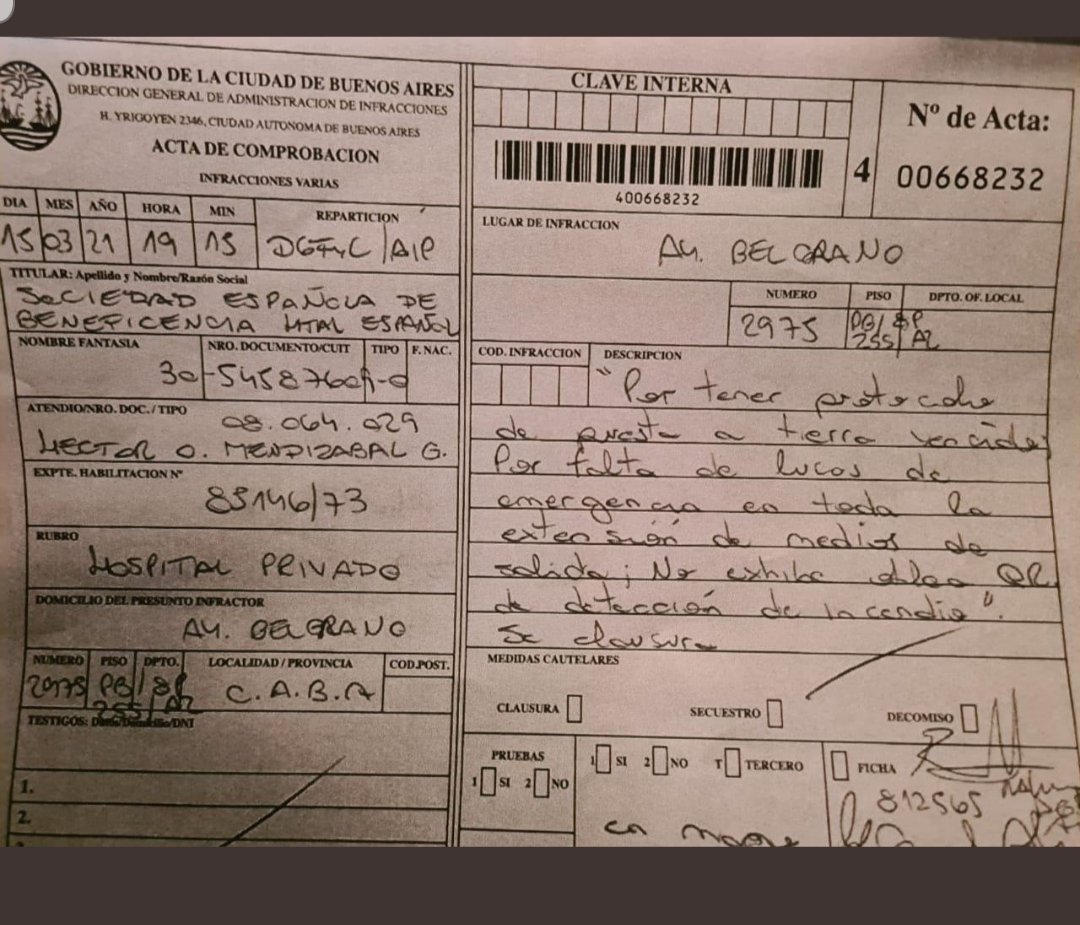 GOBIERNO DE LA CIUDAD DE BUENOS AIRES
DIRECCION GENERAL DE ADMINISTRACION DE INFRACCIONES
H. YRIGOYEN 2346, CIUDAD AUTONOMA DE BUENOS AIRES
ACTA DE COMPROBACION
INFRACCIONES VARIAS
DIA MES AÑO HORA MIN REPARTICION
15 03 21 19 15 DGFyC/AIP
TITULAR: Apellido y Nombre/Razón Social
SOCIEDAD ESPAÑOLA DE
BENEFICENCIA HTAL ESPAÑOL
NOMBRE FANTASIA NRO. DOCUMENTO/CUIT TIPO F. NAC.
ATENDIO/NRO. DOC. / TIPO
08.064.029
HECTOR O. MENDIZABAL G.
EXPTE. HABILITACION Nº
85146/73
RUBRO
HOSPITAL PRIVADO
DOMICILIO DEL PRESUNTO INFRACTOR
AV. BELGRANO
NUMERO PISO DPTO. LOCALIDAD / PROVINCIA COD.POST.
2975 PB/ C.A.B.A
TESTIGOS:
1.
2.
CLAVE INTERNA
400668232
4
Nº de Acta:
00668232
LUGAR DE INFRACCION
AV. BELGRANO
NUMERO PISO DPTO. OF. LOCAL
2975 PB/
COD. INFRACCION DESCRIPCION
"Por tener protocolo
de puesta a tierra vencido;
Por falta de luces de
emergencia en toda la
extensión de medios de
salida; No exhibe QR
de detección de incendio".
Se clausura
MEDIDAS CAUTELARES
CLAUSURA SECUESTRO DECOMISO
PRUEBAS
1 SI 2 NO
1 SI 2 NO T TERCERO FICHA
812565